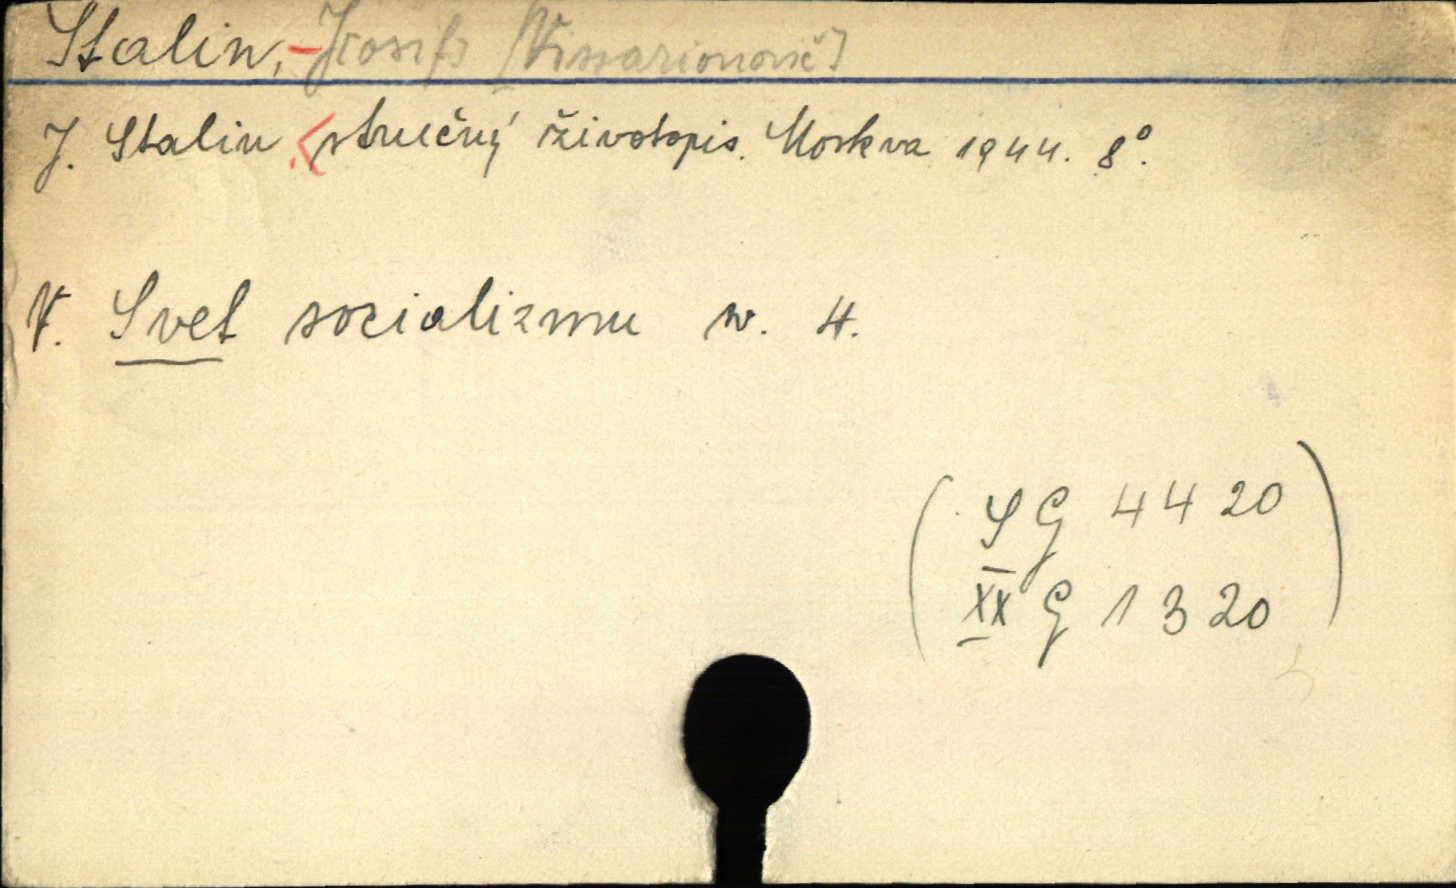 Stalin, Josif [Vissarionovič]
J. Stalin, stručný životopis. Moskva 1944. 8°.
V. Svet socializmu sv. 4.
( SG 4420
XX G 1320 )